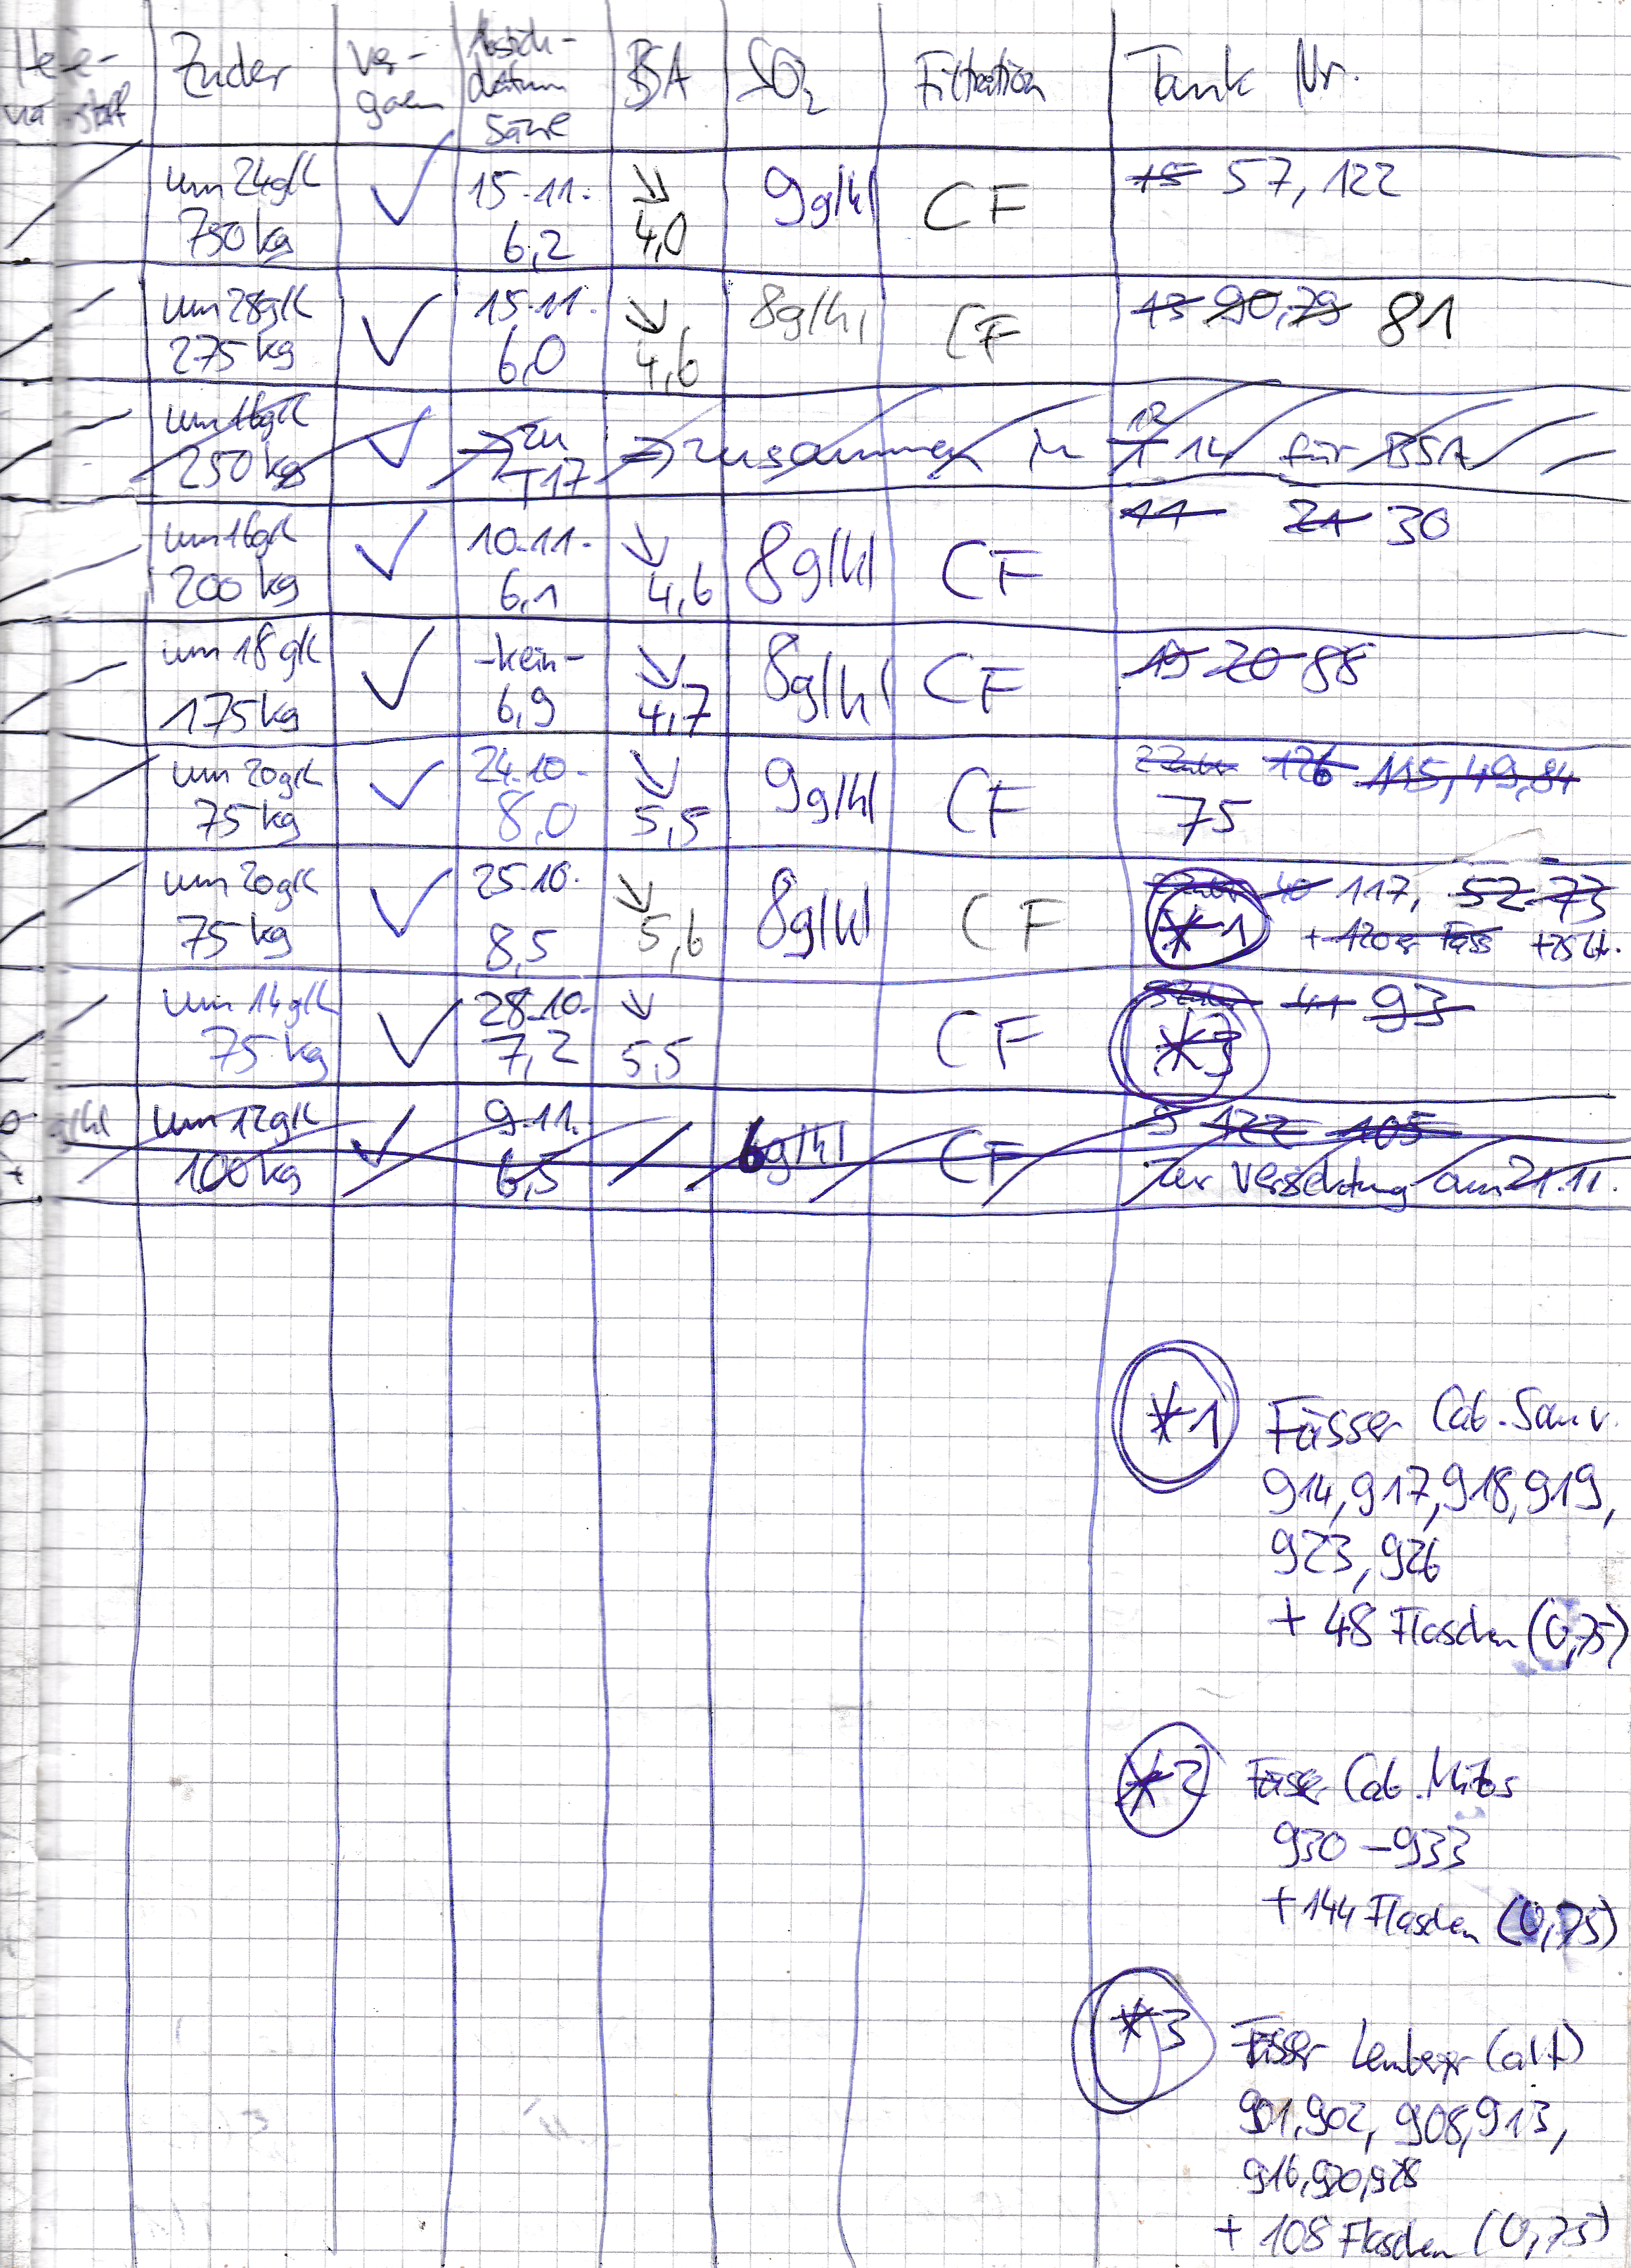 Zucker Ver- Absich- BSA SO₂ Filtration Tank Nr.
goren datum
Säure
um 24g/l ✓ 15.11. ↘ 9g/hl CF 15 57, 122
750 kg 6,2 4,0
um 28g/l ✓ 15.11. ↘ 8g/hl CF 13 90, 79 81
275 kg 6,0 4,6
um 16g/l ✓ → zu ⇒ zusammen in T 14 für BSA
250 kg T17
um 16g/l ✓ 10.11. ↘ 8g/hl CF 11 21 30
200 kg 6,1 4,6
um 18 g/l ✓ -kein- ↘ 8g/hl CF 19 20 88
175 kg 6,9 4,7
um 20g/l ✓ 24.10. ↘ 9g/hl CF 126 115, 49, 84
75 kg 8,0 5,5 75
um 20g/l ✓ 25.10. ↘ 8g/hl CF 40 117, 52 73
75 kg 8,5 5,6 *1 + 120er Fass +75 Ltr.
um 14g/l ✓ 28.10. ↘ CF 41 93
75 kg 7,2 5,5 *3
g/hl um 12g/l ✓ 9.11. 6g/hl CF 9 122 105
100 kg 6,5 zur Versektung am 21.11.
*1 Fässer Cab. Sauv.
914, 917, 918, 919,
923, 926
+ 48 Flaschen (0,75)
*2 Fässer Cab. Mitos
930 – 933
+ 144 Flaschen (0,75)
*3 Fässer Lemberger (alt)
901, 902, 908, 913,
916, 920, 928
+ 108 Flaschen (0,75)